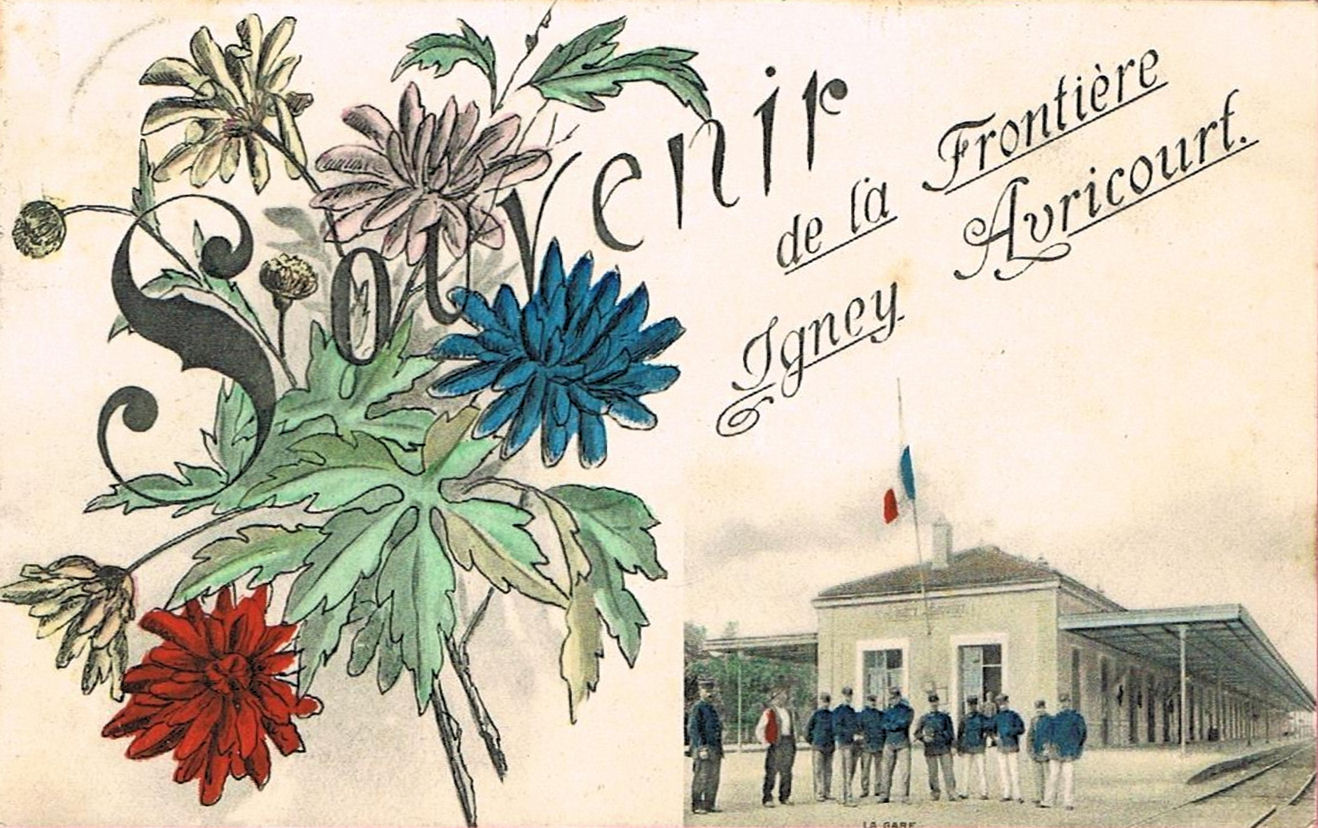 Souvenir
de la Frontière
Igney Avricourt.
LA GARE